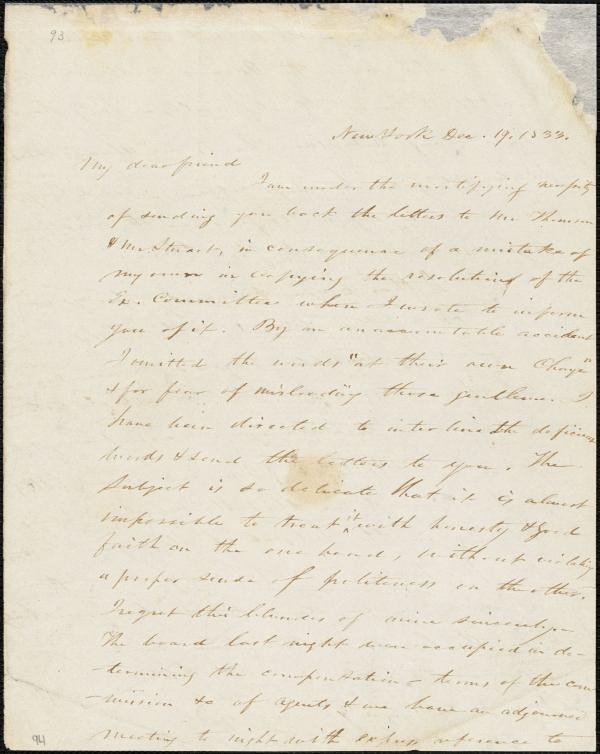 93
New York Dec. 19. 1833.
My dear friend
I am under the mortifying necessity
of sending you back the letters to Mr Thomson
& Mr Stuart, in consequence of a mistake of
my own in copying the resolutions of the
Ex. Committee when I wrote to inform
you of it. By an unaccountable accident
I omitted the words "at their own Charge"
& for fear of misleading those gentlemen I
have been directed to interline the deficient
words & send the letters to you. The
subject is so delicate that it is almost
impossible to treat it with honesty & good
faith on the one hand, without violating
a proper sense of politeness on the other.
I regret this blunder of mine sincerely.
The board last night were occupied in de-
-termining the compensation - terms of the com-
-mission &c of agents & we have an adjourned
meeting to night with express reference to
94